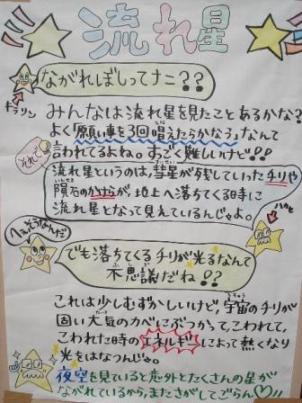 流れ星
ながれぼしってナニ??
キラリン
みんなは流れ星を見たことあるかな?
よく「願い事を3回唱えたらかなう」なんて
言われてるよね。すごく難しいけど!!
それで
流れ星というのは、彗星が残していったチリや
隕石のかけらが、地上へ落ちてくる時に
流れ星となって見えているんじゃよ。
へぇそうなんだ
でも落ちてくるチリが光るなんて
不思議だね!?
これは少しむずかしいけど、宇宙のチリが
固い大気のカベにぶつかって、こわれて、
こわれた時のエネルギーによって熱くなり
光をはなつんじゃ。
夜空を見ていると意外とたくさんの星が
ながれているから、またさがしてごらん♡!!